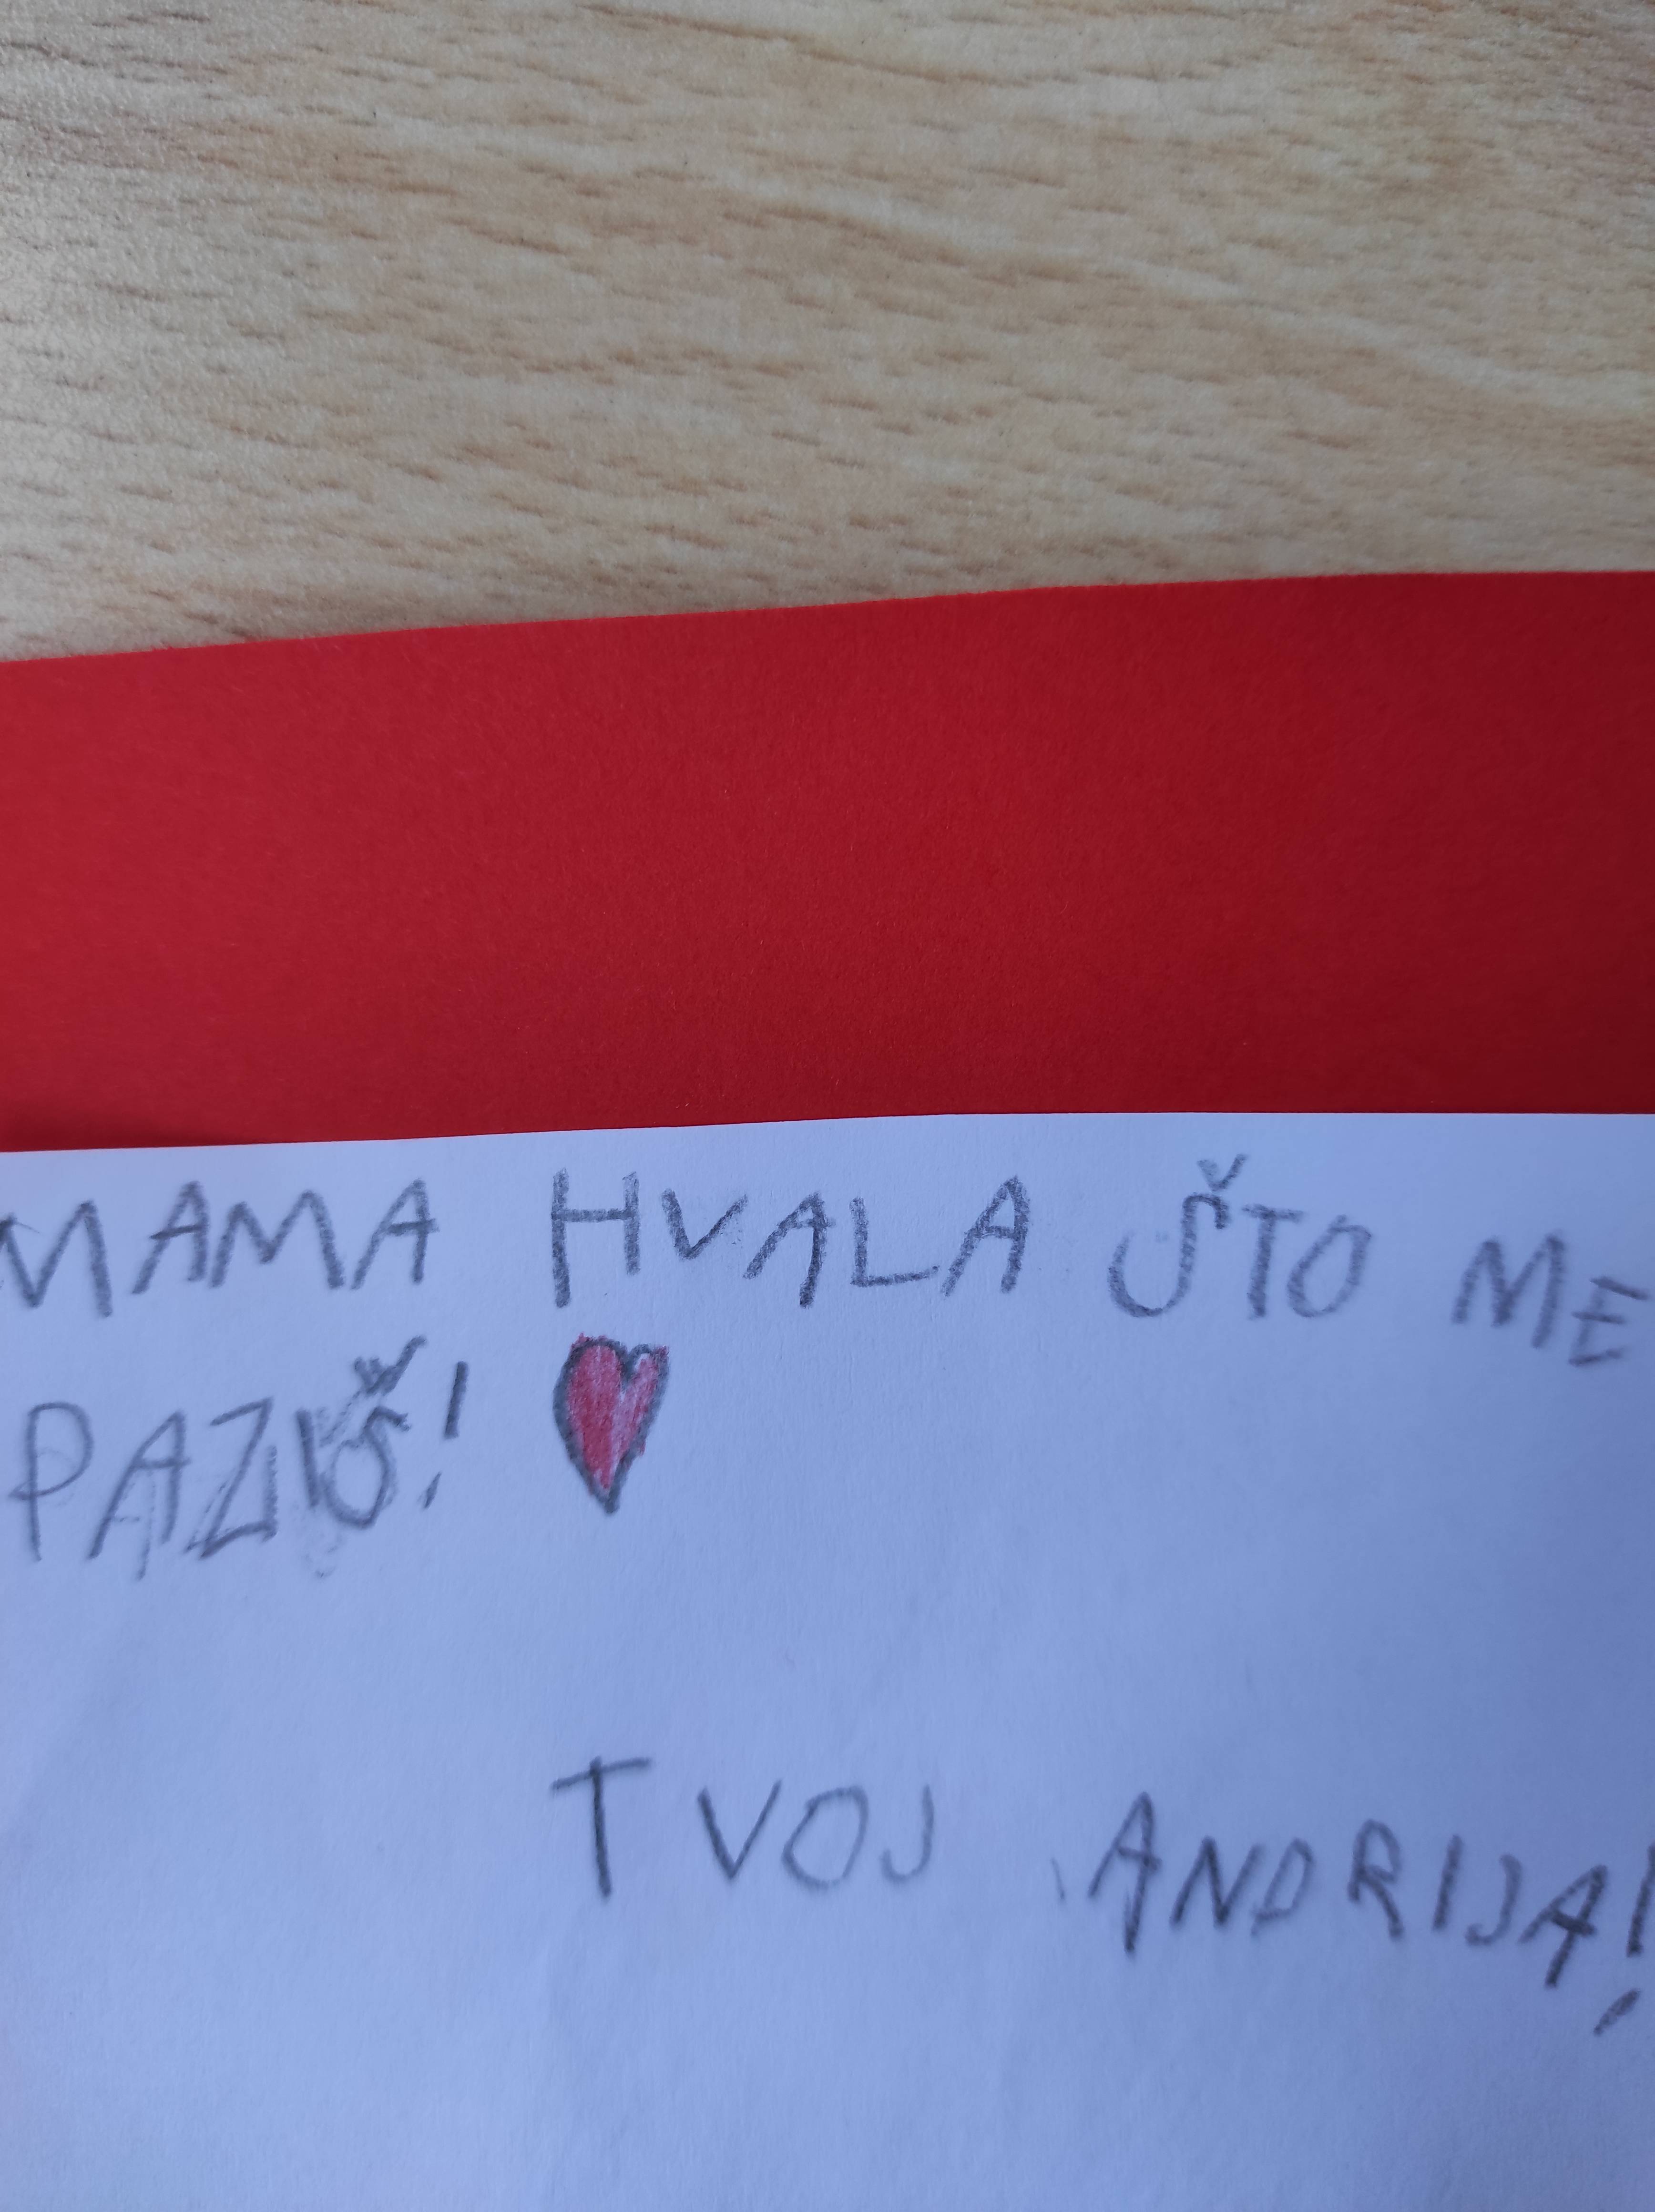 MAMA HVALA ŠTO ME
PAZIŠ!
TVOJ ANDRIJA!